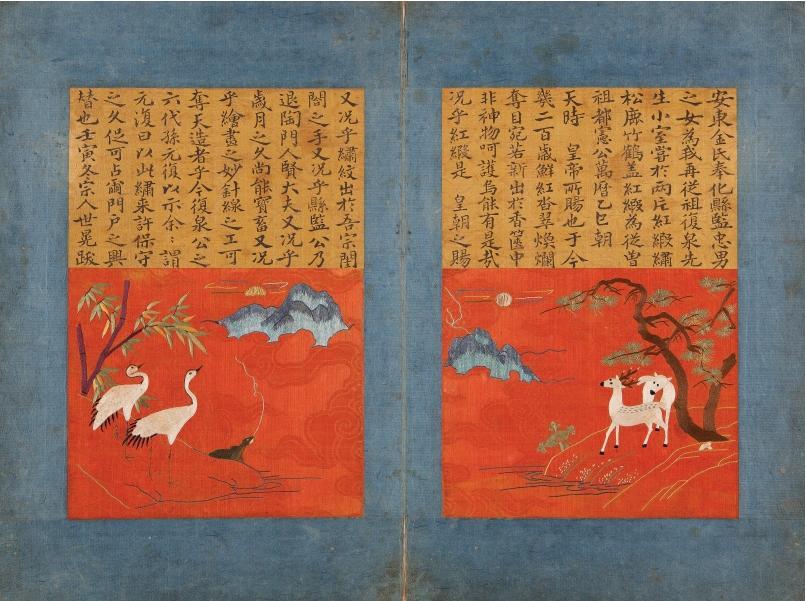 安東金氏奉化縣監忠男
之女為我再從祖復泉先
生小室嘗於兩片紅緞繡
松鹿竹鶴盖紅緞為從曾
祖都憲公萬曆乙巳朝
天時 皇帝所賜也于今
幾二百歲鮮紅沓翠煥爛
奪目宛若新出於香篋中
非神物呵護烏能有是哉
况乎紅緞是 皇朝之賜
又况乎繡紋出於吾宗閨
閤之手又况乎縣監公乃
退陶門人賢大夫又况乎
歲月之久尚能寶畜又况
乎繪畵之妙針線之工可
奪天造者乎今復泉公之
六代孫元復以示余〻謂
元復曰以此繡来許保守
之久可占爾門戶之興
替也壬寅冬宗人世晃跋